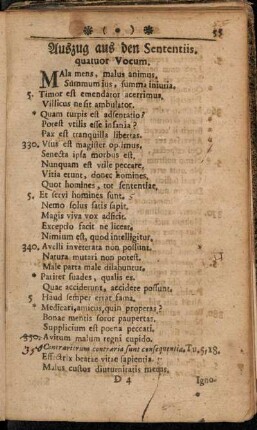 * ( • ) * 55
Auszug aus den Sententiis,
quatuor Vocum.
MAla mens, malus animus,
Summum ius, summa iniuria.
5. Timor est emendator acerrimus.
Villicus ne sit ambulator.
* Quam turpis est adsentatio?
Potest vtilis esse infamia?
Pax est tranquilla libertas.
330. Vsus est magister optimus.
Senecta ipsa morbus est.
Nunquam est vtile peccare,
Vitia erunt, donec homines,
Quot homines, tot sententiae,
5. Et servi homines sunt.
Nemo solus satis sapit.
Magis viva vox adficit.
Excepto facit ne liceat,
Nimium est, quod intelligitur,
340. Avelli inveterata non possunt.
Natura mutari non potest.
Male parta male dilabuntur,
* Pariter suades, qualis es.
Quae acciderunt, accidere possunt.
5 Haud semper errat fama.
* Medicari, amicus, quin properas?
Bonae mentis soror paupertas.
Supplicium est poena peccati.
350. Avitum malum regni cupido.
350 Contrariorum contraria sunt consequentia. Tu, 5, 18.
Effectrix beatae vitae sapientia.
Malus custos diuturnitatis metus.
D 4 Igno-